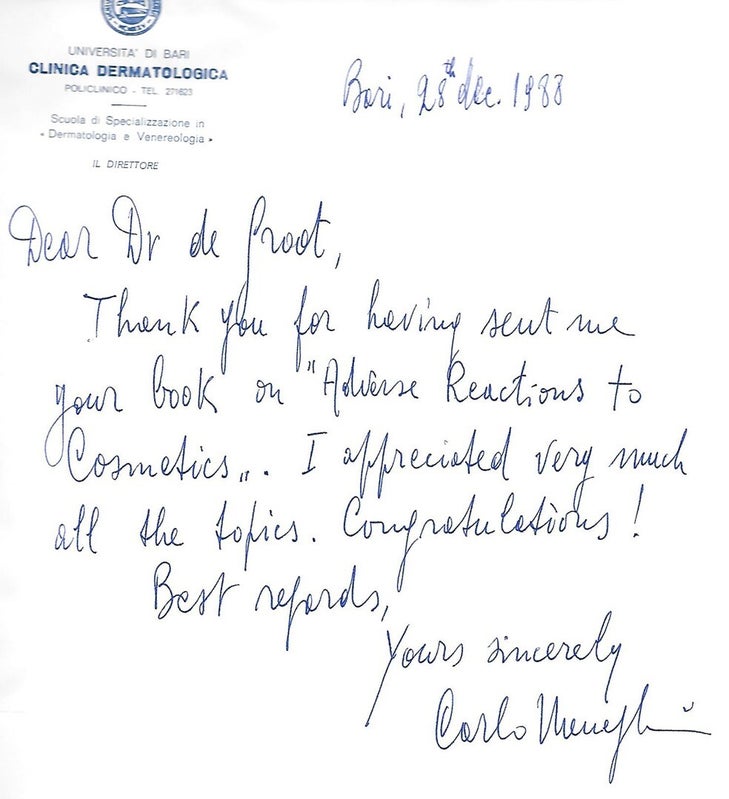 UNIVERSITA' DI BARI
CLINICA DERMATOLOGICA
POLICLINICO - TEL. 271623
Scuola di Specializzazione in
« Dermatologia e Venereologia »
IL DIRETTORE
Bari, 28th dec. 1988
Dear Dr de Groot,
Thank you for having sent me
your book on "Adverse Reactions to
Cosmetics„. I appreciated very much
all the topics. Congratulations!
Best regards,
Yours sincerely
Carlo Meneghini